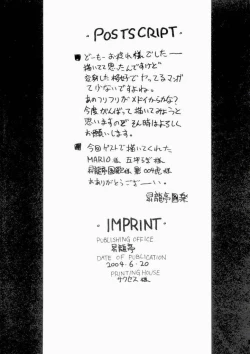 ·POSTSCRIPT·
■ どーもーお疲れ様でしたー
描いてて思ったんですけど
登別した椅子でヤッてるマンガ
て少ないですよね。
あのフリフリがメドイからかな?
今度がんばって描いてみようと
思いますのでその時はよろしく
お願いします。
■ 今回ゲストで描いてくれた
MARIO様、五坪
昇龍亭
ありがとうございーい。
昇龍亭圓楽
·IMPRINT·
PUBLISHING OFFICE
昇龍亭
DATE OF PUBLICATION
2004.6.20
PRINTING HOUSE
サクセス様